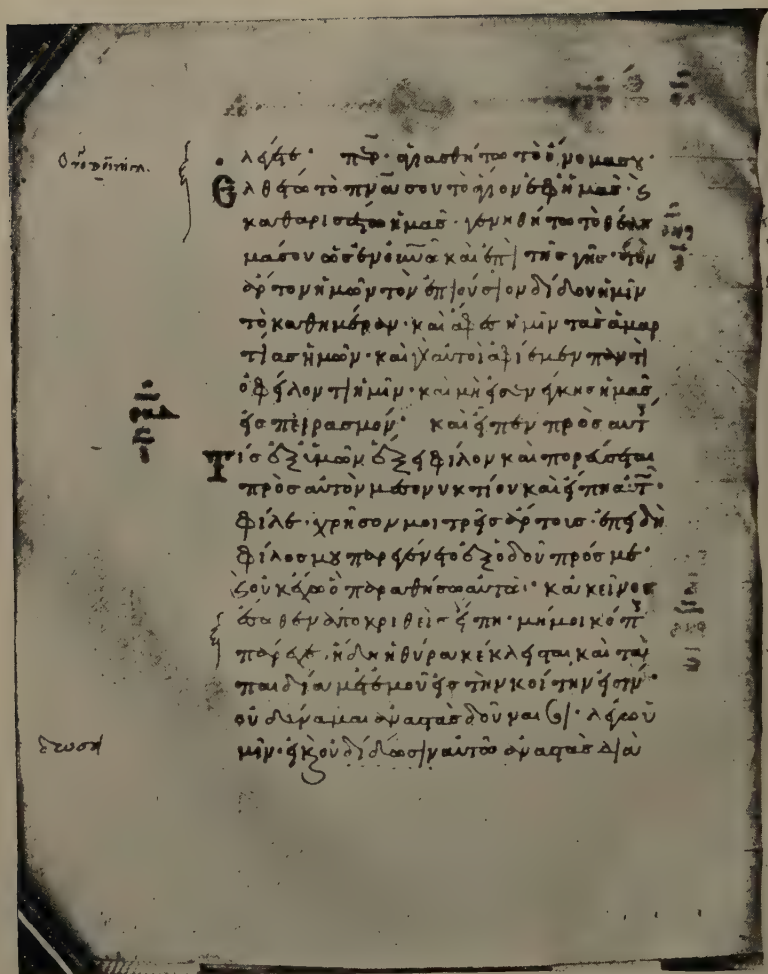 λέγετε · π̅ε̅ρ · ἁγιασθήτω τὸ ὄνομά σου ·
Ἐλθέτω τὸ πν̅α̅ σου τὸ ἅγιον ἐφ ἡμᾶς · ϗ
καθαρισάτω ἡμᾶς · γενηθήτω τὸ θέλη
μά σου ὡς ἐν οὐν̅ω̅ καὶ ἐπὶ τῆς γῆς · τὸν
ἄρτον ἡμῶν τὸν ἐπιούσιον δίδου ἡμῖν
τὸ καθημέραν · καὶ ἄφες ἡμῖν τὰς ἁμαρ
τίας ἡμῶν · καὶ γὰρ αὐτοὶ ἀφίεμεν παντὶ
ὀφείλοντι ἡμῖν · καὶ μὴ εἰσενέγκης ἡμᾶς
εἰς πειρασμόν · καὶ εἶπεν πρὸς αὐτ
Τίς ἐξ ὑμῶν ἕξει φίλον καὶ πορεύσεται
πρὸς αὐτὸν μεσονυκτίου καὶ εἴπη αὐτ ·
φίλε · χρῆσόν μοι τρεῖς ἄρτους · ἐπειδὴ
φίλος μου παρεγένετο ἐξ ὁδοῦ πρός με ·
ϗ οὐκ ἔχω ὃ παραθήσω αὐτῶ · κἀκεῖνος
ἔσωθεν ἀποκριθεὶς εἴπη · μή μοι κόπ
πάρεχε · ἤδη ἡ θύρα κέκλεισται, καὶ τὰ
παιδία μετ ἐμοῦ εἰς τὴν κοίτην εἰσίν ·
οὐ δύναμαι ἀναστὰς δοῦναί σοι · λέγω ὑ
μῖν · εἰ καὶ οὐ δίδωσιν αὐτῶ ἀναστὰς διὰ